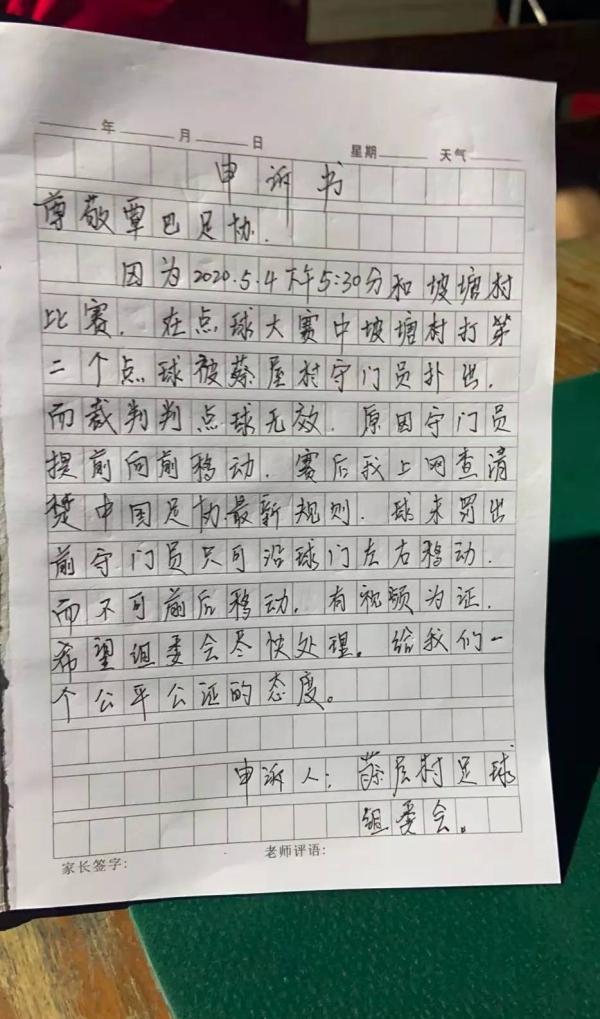 年 月 日 星期 天气
申诉书
尊敬覃巴足协.
因为2020.5.4下午5:30分和坡塘村
比赛. 在点球大赛中坡塘村打第
二个点球被蔡屋村守门员扑出.
而裁判判点球无效. 原因守门员
提前向前移动. 赛后我上网查清
楚中国足协最新规则. 球未罚出
前守门员只可沿球门左右移动.
而不可前后移动. 有视频为证.
希望组委会尽快处理. 给我们一
个公平公证的态度。
申诉人: 蔡屋村足球
组委会.
家长签字: 老师评语: